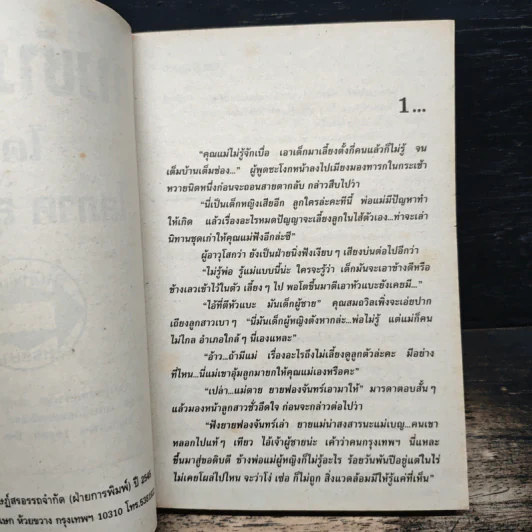 1...
"คุณแม่ไม่รู้จักเบื่อ เอาเด็กมาเลี้ยงตั้งกี่คนแล้วก็ไม่รู้ จน
เต็มบ้านเต็มช่อง..." ผู้พูดชะโงกหน้าลงไปเมียงมองทารกในกระเช้า
หวายนิดหนึ่งก่อนจะถอนสายตากลับ กล่าวสืบไปว่า
"นี่เป็นเด็กหญิงเสียอีก ลูกใครล่ะคะทีนี้ พ่อแม่มีปัญหาทำ
ให้เกิด แล้วเรื่องอะไรหมดปัญญาจะเลี้ยงลูกในไส้ตัวเอง...ท่าจะเล่า
นิทานชุดเก่าให้คุณแม่ฟังอีกล่ะซี"
ผู้อาวุโสกว่า ยังเป็นฝ่ายนิ่งฟังเงียบๆ เสียงบ่นต่อไปอีกว่า
"ไม่รู้พ่อ รู้แม่แบบนี้น่ะ ใครจะรู้ว่า เด็กมันจะเอาข้างดีหรือ
ข้างเลวเข้าไว้ในตัว เลี้ยงๆ ไป พอโตขึ้นมาตีเอาหัวแบะยังเคยมี..."
"ไอ้ที่ตีหัวแบะ มันเด็กผู้ชาย" คุณสมถวิลเพิ่งจะเอ่ยปาก
เถียงลูกสาวเบาๆ "นี่มันเด็กผู้หญิงดังหากล่ะ...พ่อไม่รู้ แต่แม่ก็คน
ไม่ไกล อำเภอใกล้ๆ นี่เองแหละ"
"อ้าว...ถ้ามีแม่ เรื่องอะไรถึงไม่เลี้ยงดูลูกตัวล่ะคะ มีอย่าง
ที่ไหน...นี่แม่เขาอุ้มลูกมายกให้คุณแม่เองหรือคะ"
"เปล่า...แม่ตาย ยายฟองจันทร์เอามาให้" มารดาตอบสั้นๆ
แล้วมองหน้าลูกสาวชั่วอึดใจ ก่อนจะกล่าวต่อไปว่า
"ฟังยายฟองจันทร์เล่า ยายแม่น่าสงสารนะแม่เบญ...คนเขา
หลอกไปแท้ๆ เทียว ไอ้เจ้าผู้ชายน่ะ เค้าว่าคนกรุงเทพฯ นี่แหละ
ขึ้นมาสู่ขอดิบดี ข้างพ่อแม่ผู้หญิงก็ไม่รู้อะไร ร้อยวันพันปีอยู่แต่ในไร่
ไม่เคยโผล่ไปไหน จะว่าโง่ เซ่อ ก็ไม่ถูก สิ่งแวดล้อมมีให้รู้แค่ที่เห็น"
ษฎ์สรอรรถจำกัด (ฝ่ายการพิมพ์) ปี 2545
ห้วยขวาง กรุงเทพฯ 10310